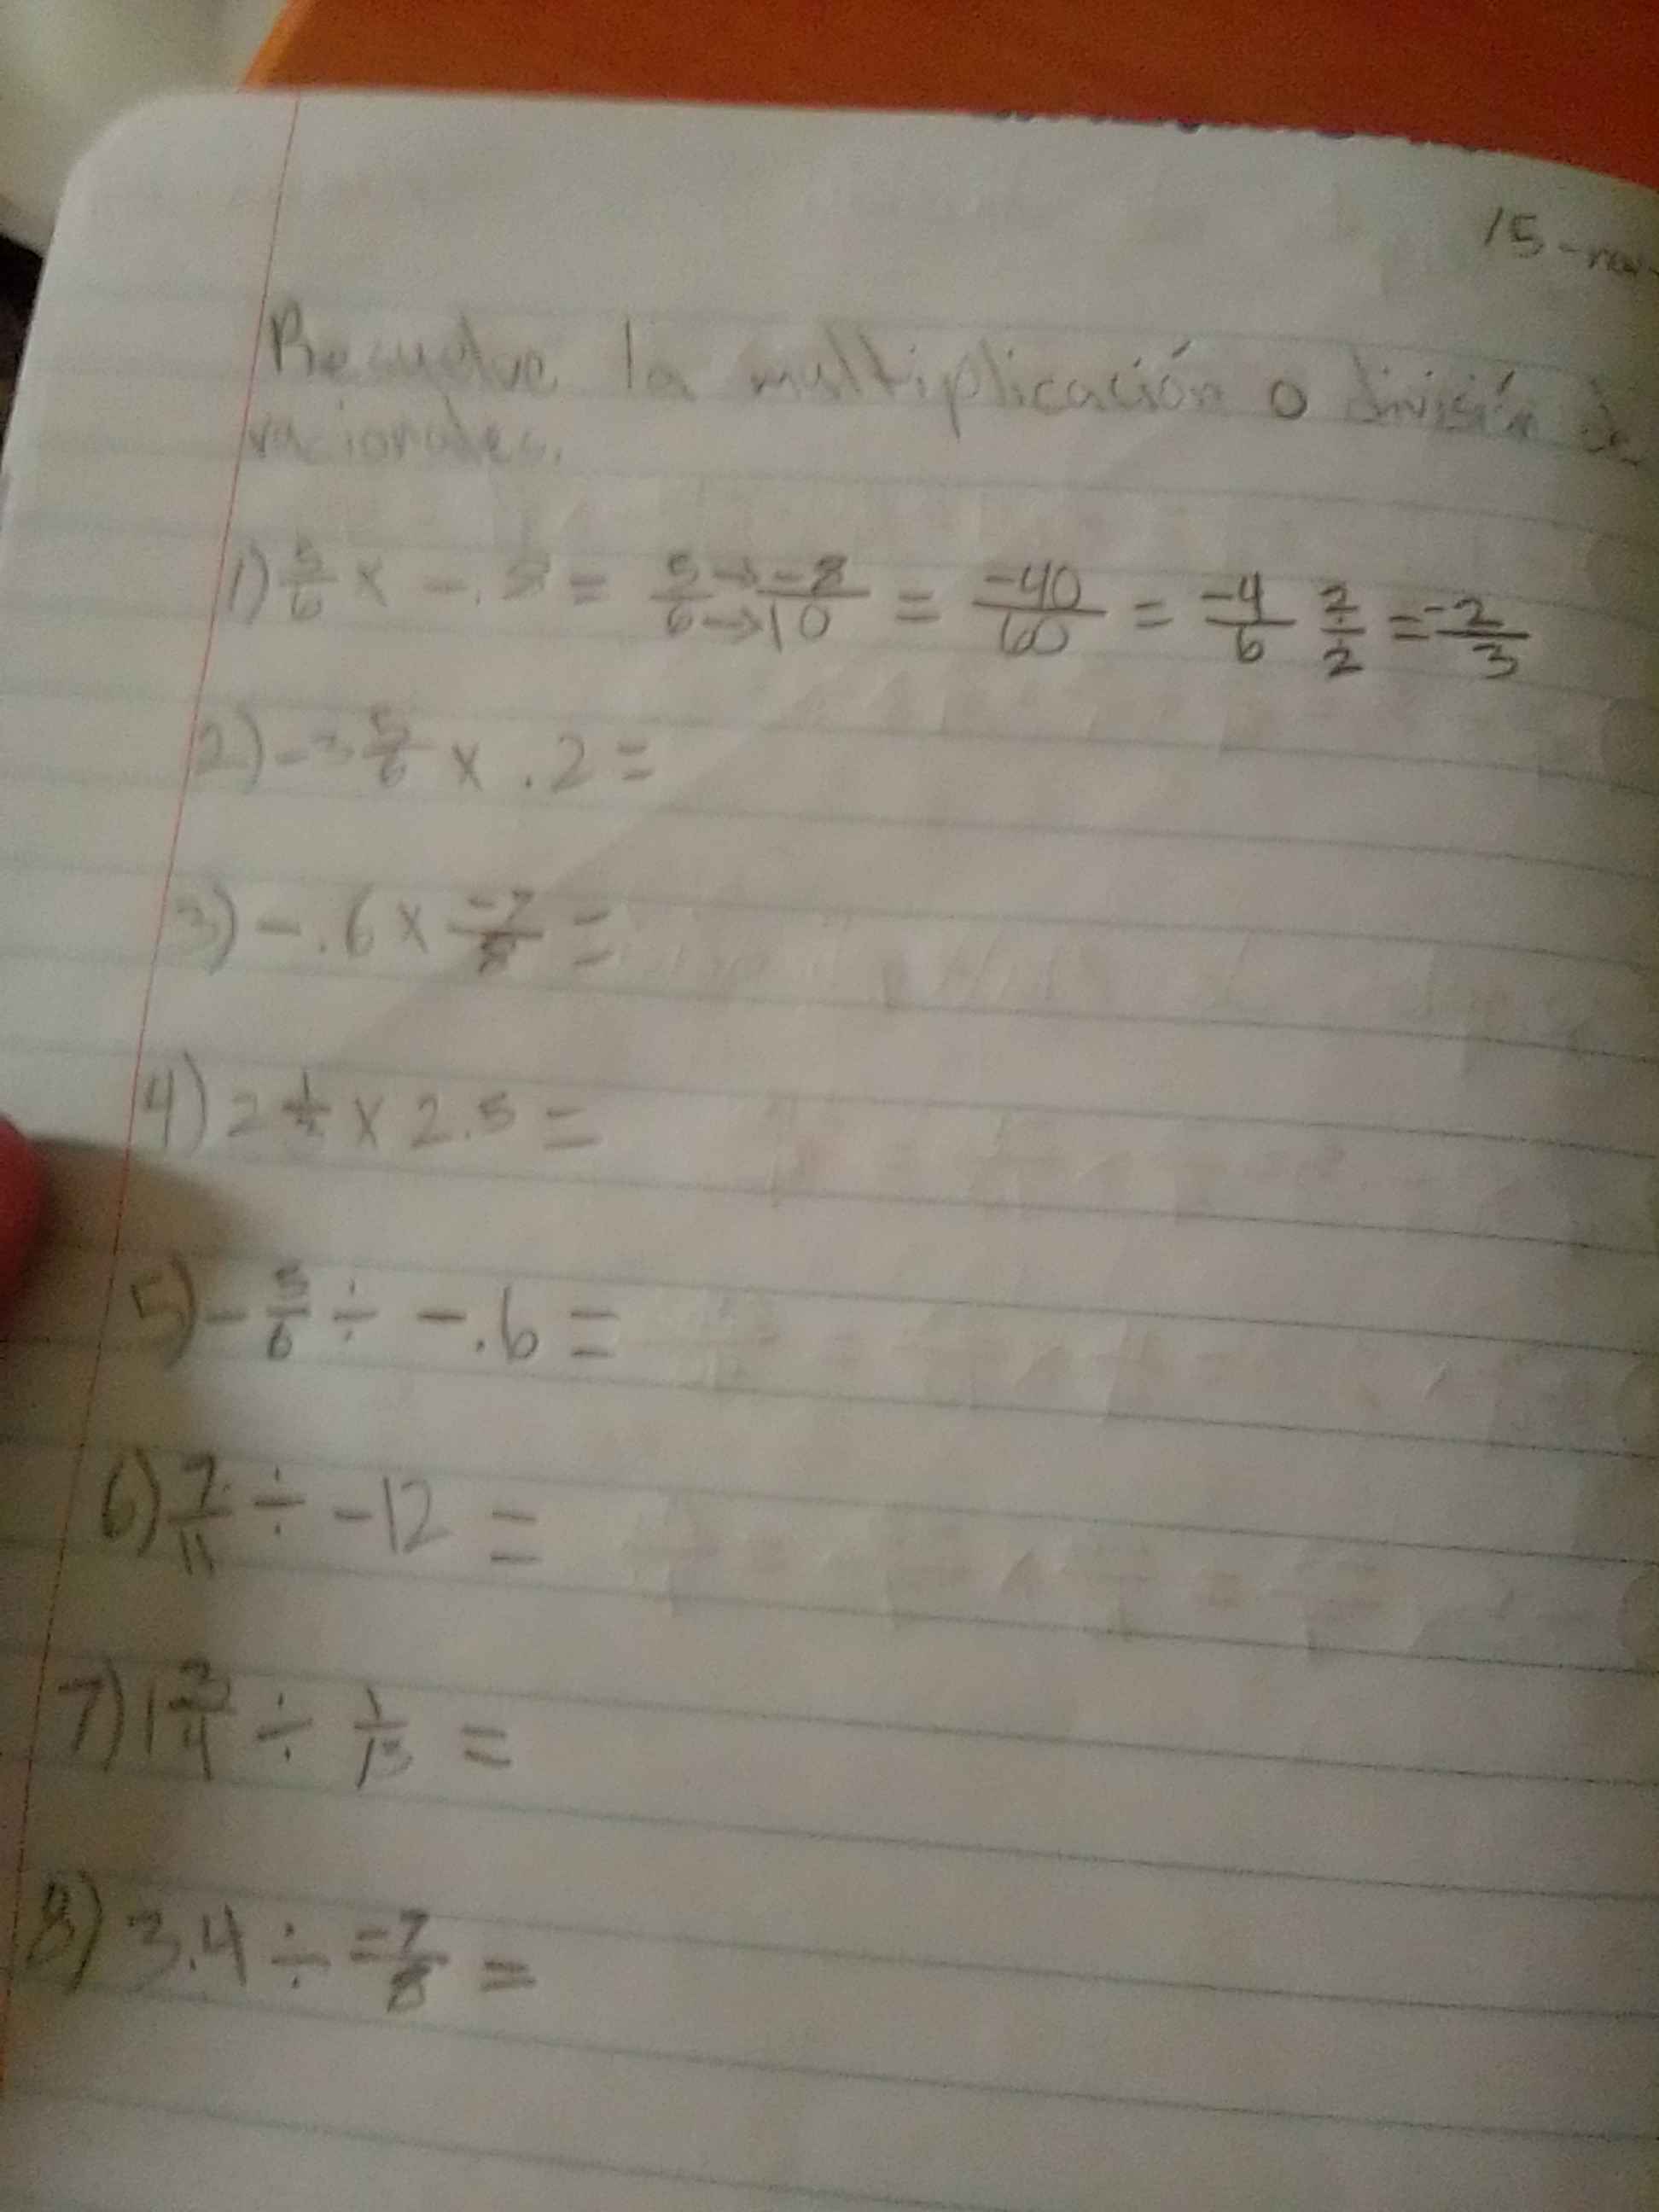 15-nov-
Resuelve la multiplicación o división de
racionales.
1) 5/6 x -.8 = 5/6 → -8/10 = -40/60 = -4/6 ÷2/÷2 = -2/3
2) -3 5/6 x .2 =
3) -.6 x -7/8 =
4) 2 1/2 x 2.5 =
5) - 5/6 ÷ -.6 =
6) 7/11 ÷ -12 =
7) 1 3/4 ÷ 1/13 =
8) 3.4 ÷ -7/8 =